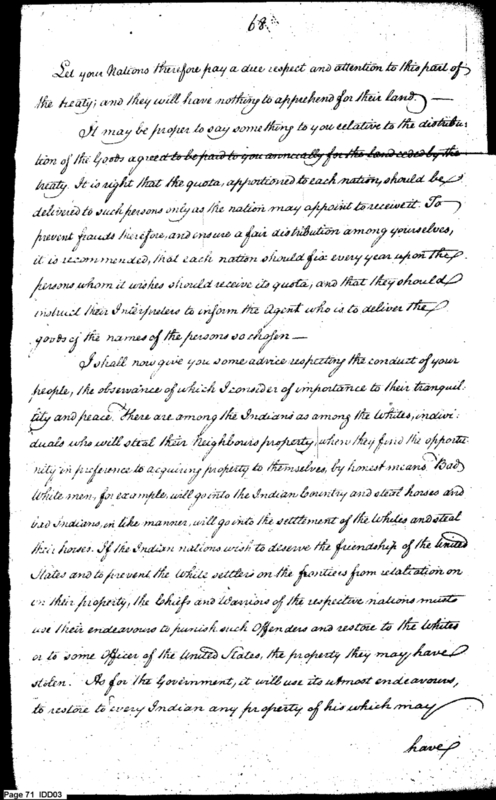 68
Let your Nations therefore pay a due respect and attention to this part of
the treaty; and they will have nothing to apprehend for their land. —
It may be proper to say something to you relative to the distribu-
tion of the Goods agreed to be paid to you annually for the land ceded by the
treaty. It is right that the quota, apportioned to each nation, should be
delivered to such persons only as the nation may appoint to receive it. To
prevent frauds therefore, and ensure a fair distribution among yourselves,
it is recommended, that each nation should fix every year upon the
persons whom it wishes should receive its quota, and that they should
instruct their Interpreters to inform the Agent who is to deliver the
goods of the names of the persons so chosen —
I shall now give you some advice respecting the conduct of your
people, the observance of which I consider of importance to their tranquil-
lity and peace. There are among the Indians as among the Whites, indivi-
duals who will steal their neighbours property, when they find the opportu-
nity in preference to acquiring property to themselves, by honest means. Bad
White men, for example, will go into the Indian Country and steal horses and
bad Indians, in like manner, will go into the settlement of the Whites and steal
their horses. If the Indian nations wish to deserve the friendship of the United
States and to prevent the White settlers on the frontiers from retaliation on
on their property, the Chiefs and Warriors of the respective nations must
use their endeavours to punish such Offenders and restore to the Whites
or to some Officer of the United States, the property they may have
stolen. As for the Government, it will use its utmost endeavours,
to restore to every Indian any property of his which may
have
Page 71 IDD03